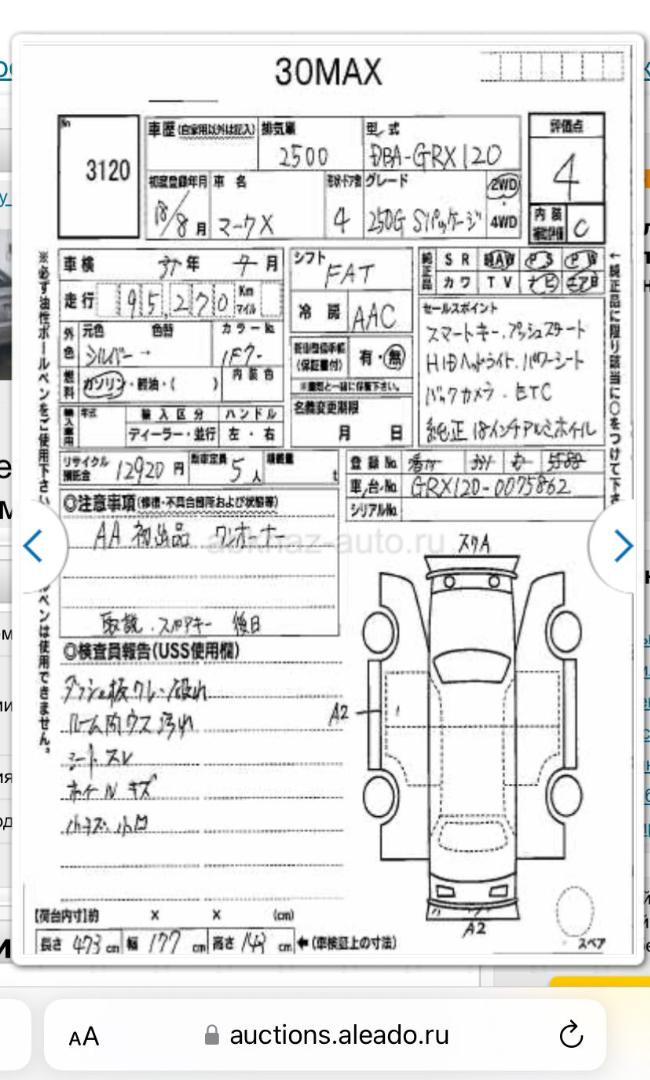 30MAX
No 3120
車歴(自家用以外は記入) 排気量 2500 型式 DBA-GRX120
評価点 4
初度登録年月 18/8月 車名 マークX 形状・ドア数 4 グレード 250G Sパッケージ 2WD・4WD
内装 補助評価 C
車検 年 月
走行 95,270 Km マイル
シフト FAT
冷房 AAC
外色 元色 シルバー 色替 → カラーNo. 1F7
燃料 ガソリン・軽油・( ) 内装色
輸入車用 年式 輸入区分 ハンドル
ディーラー・並行 左・右
(保証書付) 有・無
名義変更期限
月 日
純正品 SR AW PS PW
カワ TV ナビ エアB
セールスポイント
スマートキー.プッシュスタート
HIDヘッドライト.パワーシート
バックカメラ.ETC
純正18インチアルミホイル
リサイクル預託金 12920円 乗車定員 5人 積載量 t
登録No.
車台No. GRX120-0075862
シリアルNo.
※必ず油性ボールペンをご使用下さい
ペンは使用できません。
←純正品に限り該当に○をつけて下さ
◎注意事項(修復・不具合箇所および状態等)
AA初出品 ワンオーナー
abkhaz-auto.ru
取説.スペアキー 後日
◎検査員報告(USS使用欄)
ダッシュ板ワレ・破れ
ルーム内ウス汚れ
シートスレ
ホイールキズ
小キズ.小凹
A2
A2
スペア
【荷台内寸】約 × × (cm)
長さ 473cm 幅 177cm 高さ 143cm ←(車検証上の寸法)
AA auctions.aleado.ru